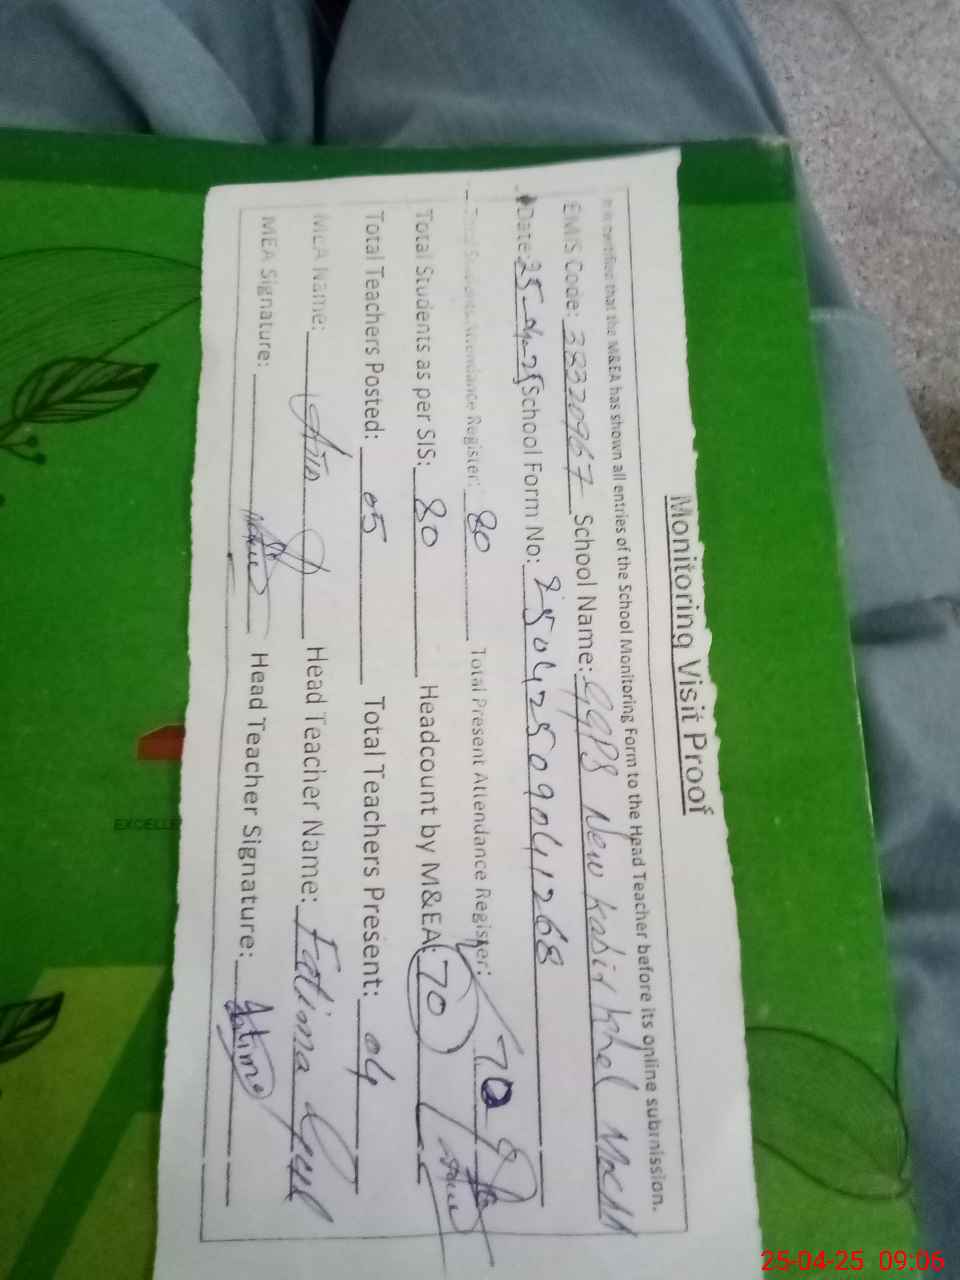 Monitoring Visit Proof
It is certified that the M&EA has shown all entries of the School Monitoring Form to the Head Teacher before its online submission.
EMIS Code: 38320967 School Name: GGPS New Kabir Khel
Date: 25-04-25 School Form No: 25042509041268
Total Students Attendance Register: 80 Total Present Attendance Register: 70
Total Students as per SIS: 80 Headcount by M&EA: 70
Total Teachers Posted: 05 Total Teachers Present: 04
MEA Name: Head Teacher Name: Fatima Gul
MEA Signature: Head Teacher Signature: Fatima
EXCELLE
25-04-25 09:06